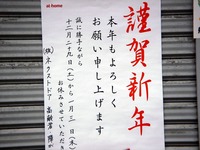 at home
謹賀新年
本年もよろしく
お願い申し上げます
誠に勝手ながら
十二月二十九日(土)から一月三日(木)
お休みさせていただき
(株)ネクストドア 高齢者